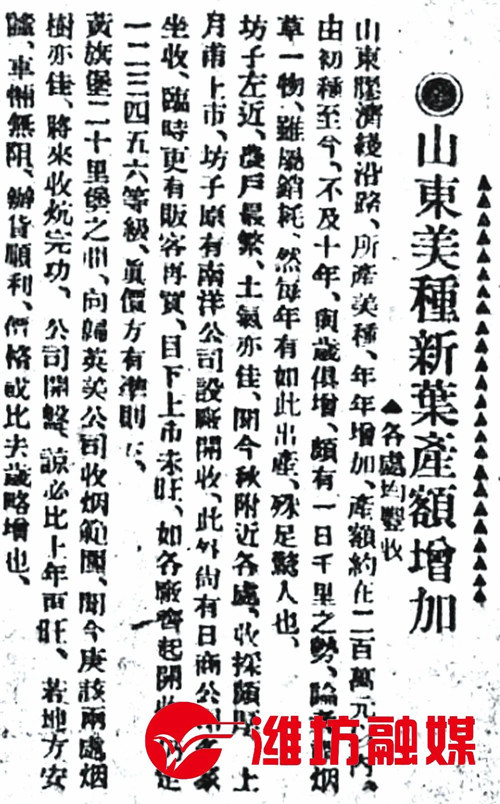 山東美種新葉產額增加
▲各處均豐收
山東膠濟綫沿路、所產美種、年年增加、產額約在二百萬元內、
由初種至今、不及十年、與歲俱增、頗有一日千里之勢、論烟
草一物、雖屬銷耗、然每年有如此出產、殊足驚人也、
坊子左近、農戶最繁、土氣亦佳、聞今秋附近各處、收採頗上
月甫上市、坊子原有南洋公司設廠開收、此外尙有日商公家
坐收、臨時更有販客再買、目下上市未旺、如各廠齊起開收定
一二三四五六等級、眞價方有準則、
黃旗堡二十里堡之、向歸英美公司收烟範圍、聞今庚該兩處烟
樹亦佳、將來收炕完功、公司開盤、諒必比上年更旺、若地方安
謐、車輛無阻、辦貨順利、價格或比去歲略增也、
潍坊融媒